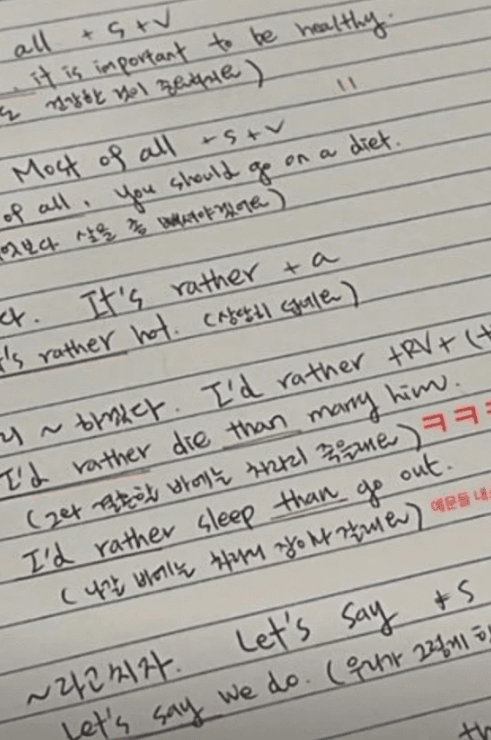 all + S + V
it is important to be healthy.
건강한 것이 중요해요)
"
Most of all + S + V
of all, you should go on a diet.
보다 살을 좀 빼셔야겠어요)
다. It's rather + a
's rather hot. (상당히 덥네요)
리 ~ 하겠다. I'd rather +RV+ (t
I'd rather die than marry him.
(그와 결혼할 바에는 차라리 죽을래요) ㅋㅋㅋ
I'd rather sleep than go out. 예문들 내
(나갈 바에는 차라리 잠이나 잘래요)
~라고 치자. Let's say + S
Let's say we do. (우리가 그렇게 한
th